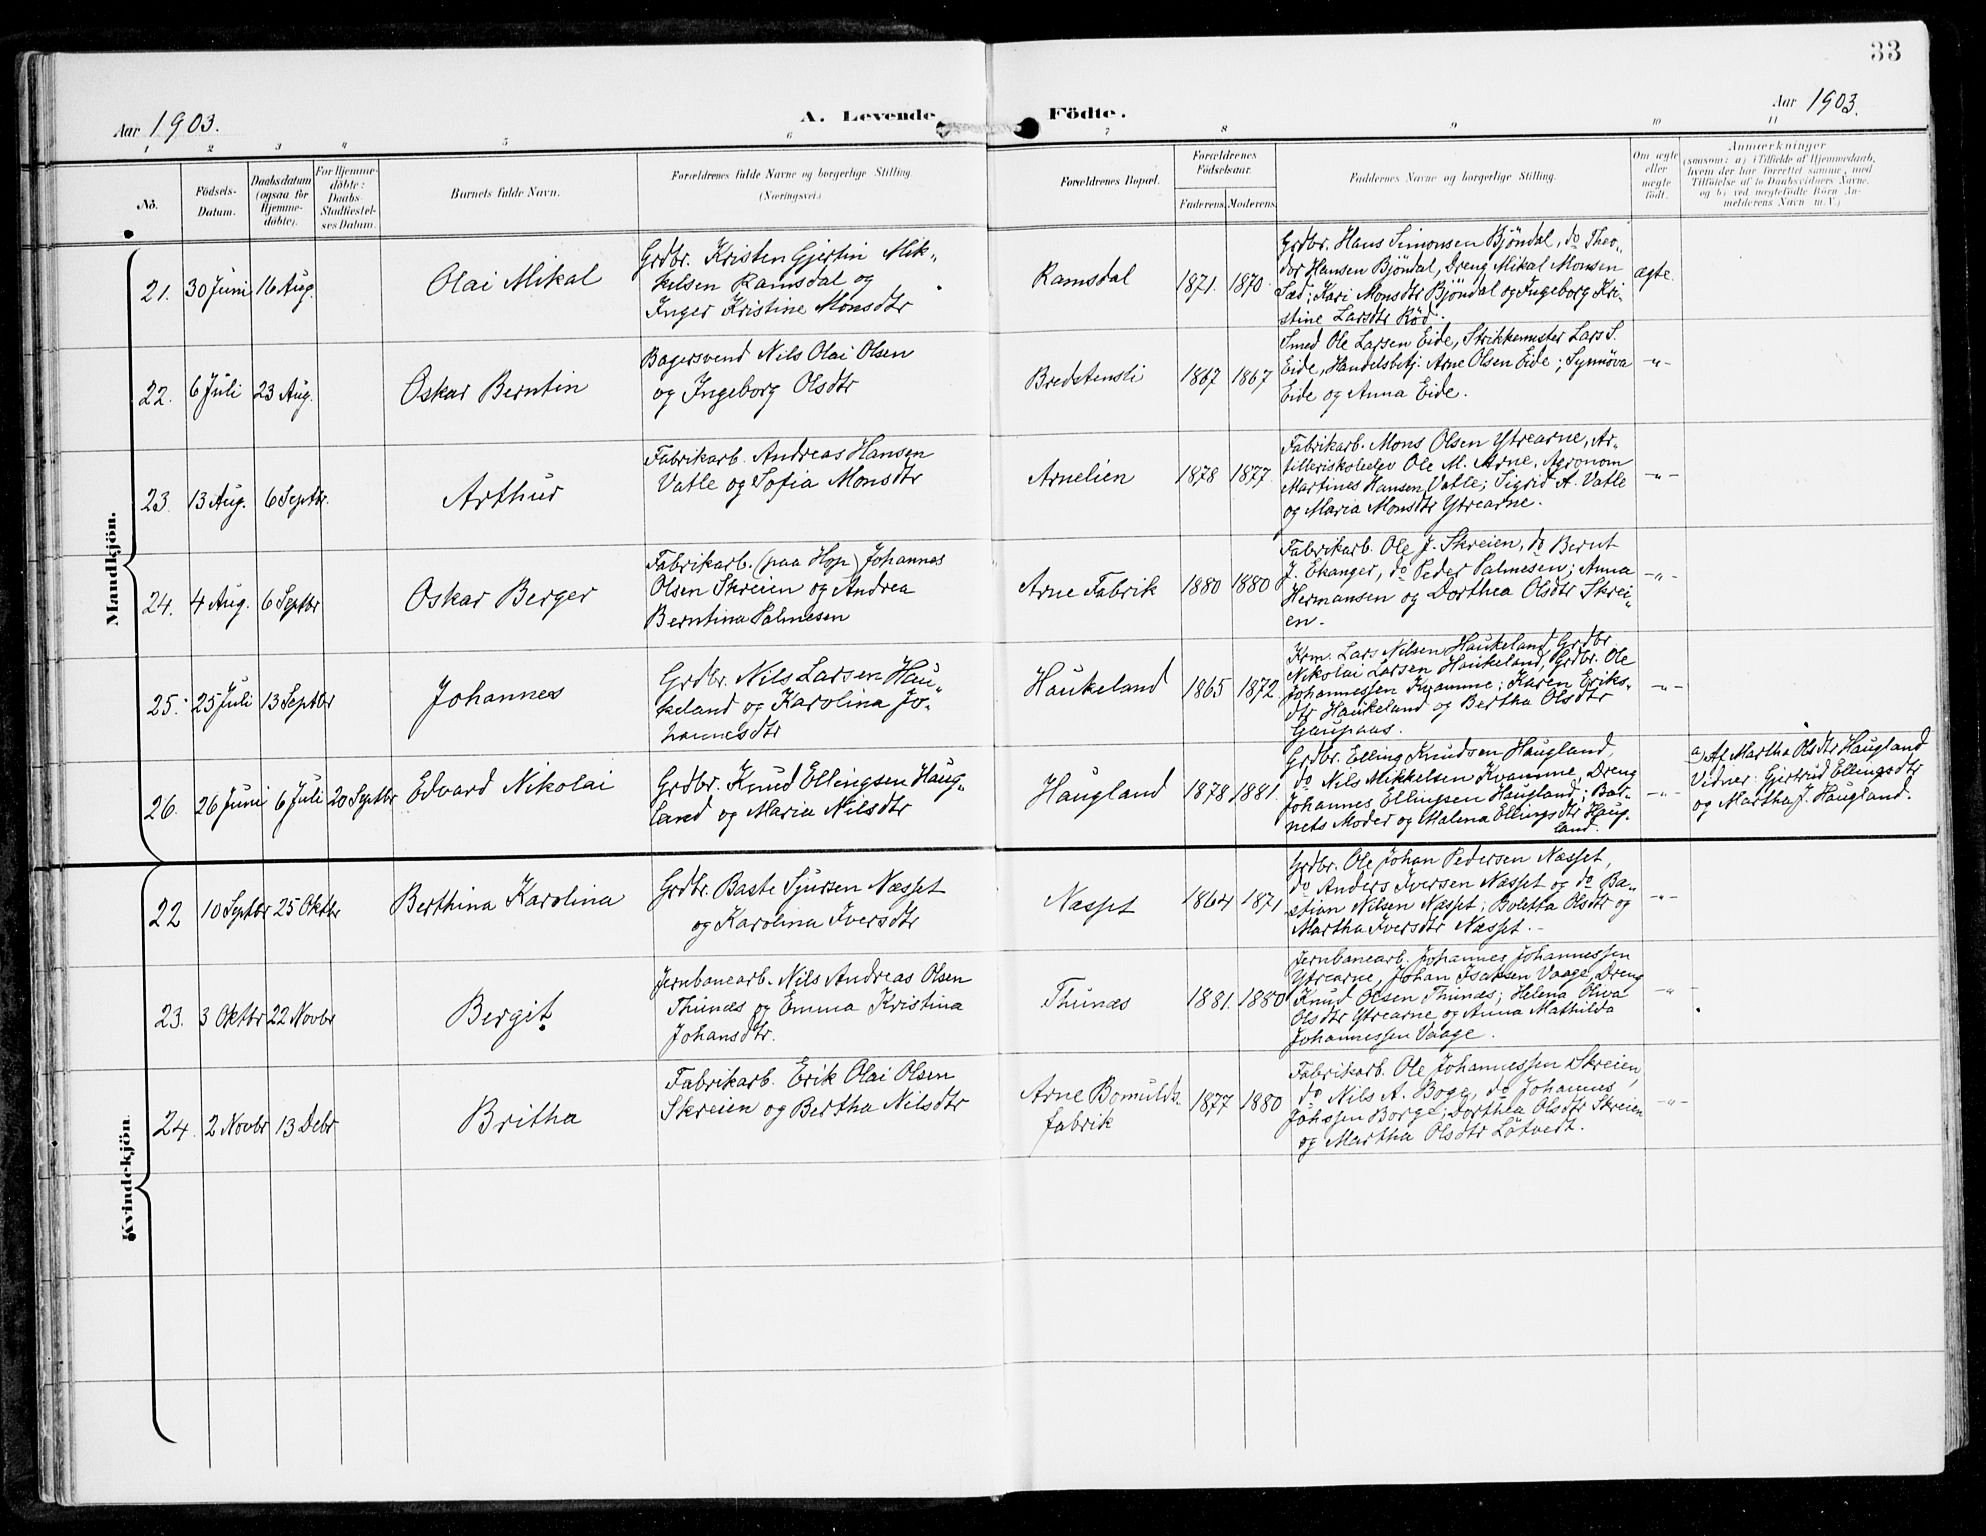 33
Aar 1903.
A. Levende Födte.
Aar 1903.
1 2 3 4 5 6 7 8 9 10 11
No.
Födsels-
Datum.
Daabsdatum
(ogsaa for
Hjemme-
döbte).
For Hjemme-
döbte:
Daabs-
Stadfæstel-
ses Datum.
Barnets fulde Navn.
Forældrenes fulde Navne og borgerlige Stilling
(Næringsvei.)
Forældrenes Bopæl.
Forældrenes
Födselsaar.
Faderens. Moderens.
Faddernes Navne og borgerlige Stilling.
Om ægte
eller
uægte
födt.
Anmærkninger
(saasom: a) i Tilfælde af Hjemmedaab,
hvem der har forrettet samme, med
Tilföielse af to Daabsvidners Navne,
og b) ved uægtefödte Börn An-
melderens Navn m. V.)
Mandkjön.
21. 30 Juni 16 Aug.
Olai Mikal
Grdbr. Kristen Gjertin Mik-
kelsen Ramsdal og
Inger Kristine Monsdtr
Ramsdal
1871. 1870.
Grdbr. Hans Simonsen Bjöndal, do Theo-
dor Hansen Bjöndal, Dreng Mikal Monsen
Sæd; Kari Monsdtr Bjöndal og Ingeborg Kri-
stine Larsdtr Röd.
ægte.
22. 6 Juli 23 Aug.
Oskar Berntin
Bagersvend Nils Olai Olsen
og Ingeborg Olsdtr
Bredstensli
1867 1867
Smed Ole Larsen Eide, Strikkemester Lars S.
Eide, Handelsbetj. Arne Olsen Eide; Synnöva
Eide og Anna Eide.
-"-
23. 13 Aug. 6 Septbr.
Arthur
Fabrikarb. Andreas Hansen
Vatle og Sofia Monsdtr
Arnelien
1878 1877.
Fabrikarb. Mons Olsen Ytrearne, Ar-
tilleriskoleelev Ole M. Arne, Agronom
Martines Hansen Vatle; Sigrid A. Vatle
og Maria Monsdtr Ytrearne.
-"-
24. 4 Aug. 6 Septbr
Oskar Berger
Fabrikarb. (paa Hop) Johannes
Olsen Skreien og Andrea
Berntina Salmesen
Arne Fabrik
1880 1880
Fabrikarb. Ole J. Skreien, do Bernt
J. Ekanger, do Peder Salmesen; Anna
Hermansen og Dorthea Olsdtr Skrei-
en.
-"-
25. 25 Juli 13 Septbr
Johannes
Grdbr. Nils Larsen Hau-
keland og Karolina Jo-
hannesdtr
Haukeland
1865 1872.
Krm. Lars Nilsen Haukeland, Grdbr
Nikolai Larsen Haukeland, Grdbr. Ole
Johannessen Kvamme; Karen Eriks-
dtr Haukeland og Bertha Olsdtr
Gaupaas.
-"-
26. 26 Juni 6 Juli 20 Septbr
Edvard Nikolai
Grdbr. Knud Ellingsen Haug-
land og Maria Nilsdtr
Haugland
1878 1881.
Grdbr. Elling Knudsen Haugland,
do Nils Mikkelsen Kvamme, Dreng
Johannes Ellingsen Haugland; Bar-
nets Moder og Malena Ellingsdtr Haug-
land.
-"-
a) Af Martha Olsdtr Haugland
Vidner: Gjertrud Ellingsdtr
og Martha J. Haugland.
Kvindekjön
22 10 Septbr 25 Oktbr
Berthina Karolina
Grdbr. Baste Sjursen Næsset
og Karolina Iversdtr
Næsset
1864 1871
Grdbr. Ole Johan Pedersen Næsset,
do Anders Iversen Næsset og do Ba-
stian Nilsen Næsset; Boletta Olsdtr og
Martha Iversdtr Næsset.-
-"-
23. 3 Oktbr 22 Novbr
Bergit
Jernbanearb. Nils Andreas Olsen
Thunæs og Emma Kristina
Johansdtr.
Thunæs
1881. 1880
Jernbanearb. Johannes Johannessen
Ytrearne, Johan Isaksen Vaage, Dreng
Knud Olsen Thunæs; Helena Oliva
Olsdtr Ytrearne og Anna Mathilda
Johannessen Vaage.
-"-
24. 2 Novbr 13 Debr
Britha
Fabrikarb. Erik Olai Olsen
Skreien og Bertha Nilsdtr
Arne Bomulds.
fabrik
1877 1880
Fabrikarb. Ole Johannessen Skreien,
do Nils A. Boge, do Johannes
Johssen Borge; Dorthea Olsdtr Skreien
og Martha Olsdtr Lötvedt.
-"-